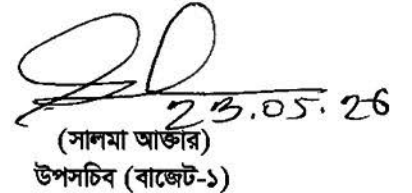 23.05.26
(সালমা আক্তার)
উপসচিব (বাজেট-১)